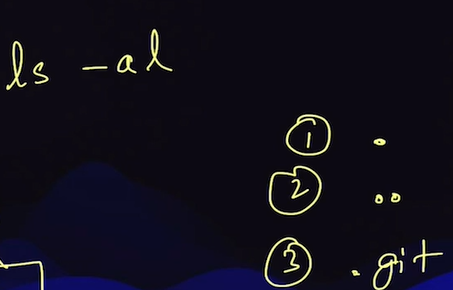 ls -al
① .
② ..
③ .git